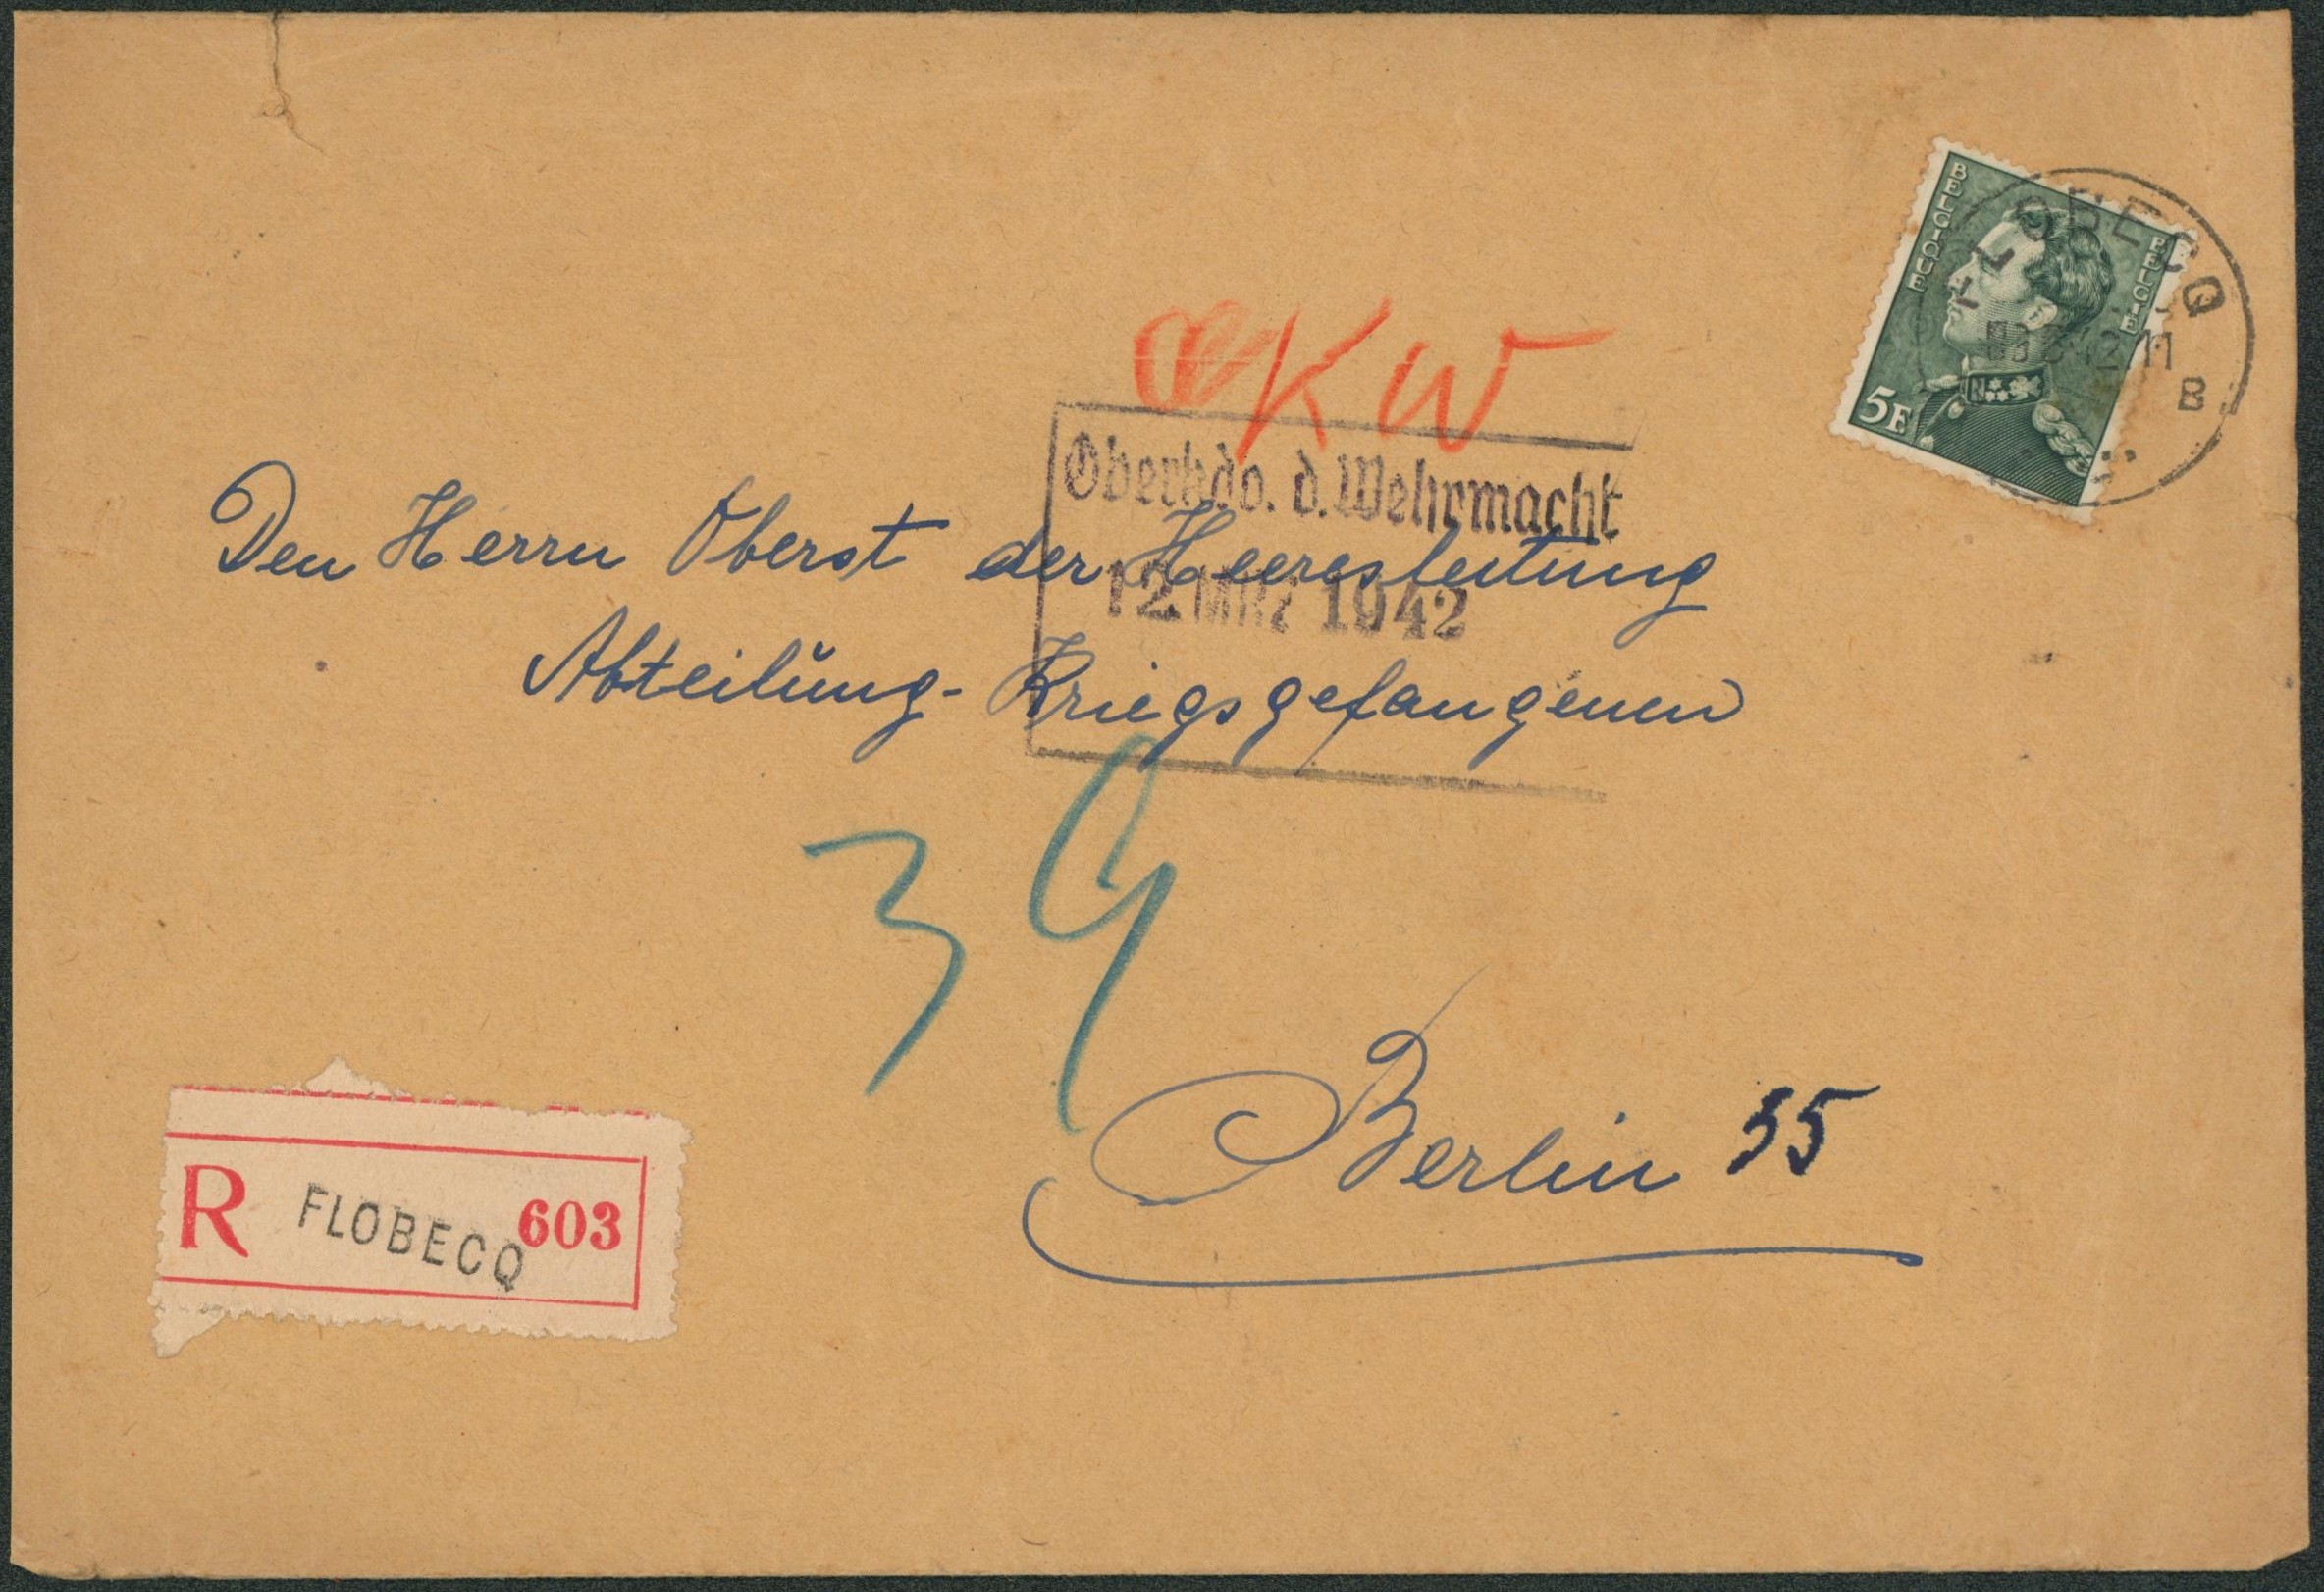 BELGIQUE
BELGIE
5F.
FLOBECQ
11
B
OKW
Oberkdo. d. Wehrmacht
12 MRZ 1942
Den Herrn Oberst der Heeresleitung
Abteilŭng - Kriegsgefangenen
39
Berlin 35
R FLOBECQ 603